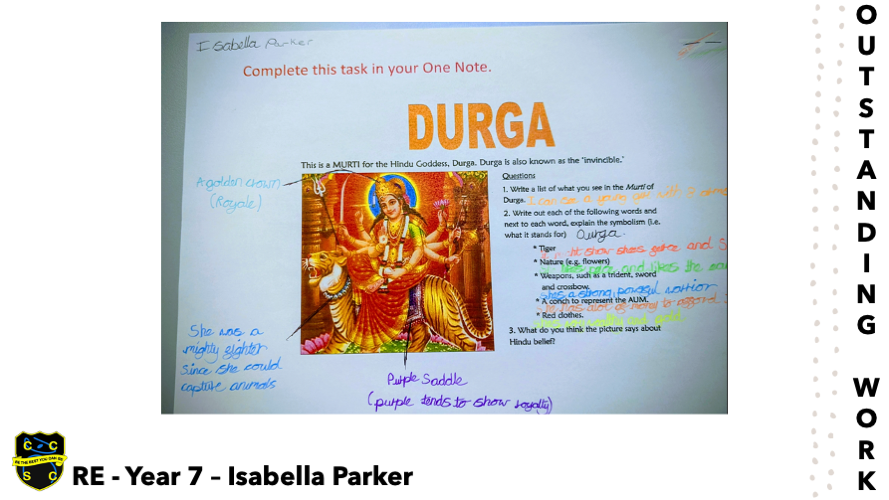 Isabella Parker
Complete this task in your One Note.
DURGA
This is a MURTI for the Hindu Goddess, Durga. Durga is also known as the 'invincible.'
A golden crown
(Royale)
Questions
1. Write a list of what you see in the Murti of
Durga. I can see a young girl with
2. Write out each of the following words and
next to each word, explain the symbolism (i.e.
what it stands for) Durga.
* Tiger
show shes and
* Nature (e.g. flowers)
and likes the
* Weapons, such as a trident, sword
and crossbow.
shes a strong, powerful warrior
* A conch to represent the AUM.
to afford
* Red clothes.
and gold
3. What do you think the picture says about
Hindu belief?
She was a
mighty fighter
Since she could
capture animals
Purple Saddle
(purple tends to show royalty)
C C
BE THE BEST YOU CAN BE
S C
RE - Year 7 – Isabella Parker
OUTSTANDING WORK